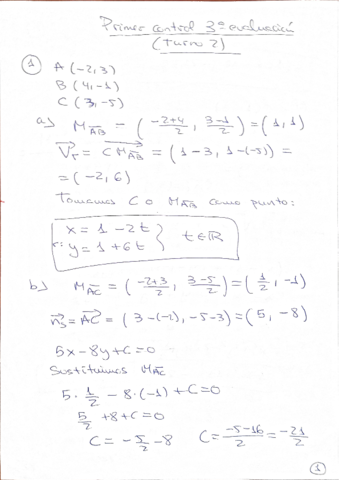 Primer control 3ª evaluación
(Turno 2)
① A (-2,3)
B (4,-1)
C (3,-5)
a) M_AB = (-2+4/2, 3-1/2) = (1,1)
V⃗r = CM_AB = (1-3, 1-(-5)) =
= (-2,6)
Tomamos C o M_AB como punto:
r: x = 1 - 2t
y = 1 + 6t } t∈ℝ
b) M_AC = (-2+3/2, 3-5/2) = (1/2, -1)
n⃗s = AC = (3-(-2), -5-3) = (5, -8)
5x-8y+C=0
Sustituimos M_AC
5·1/2 - 8·(-1) + C = 0
5/2 + 8 + C = 0
C = -5/2 - 8 C = -5-16/2 = -21/2
①